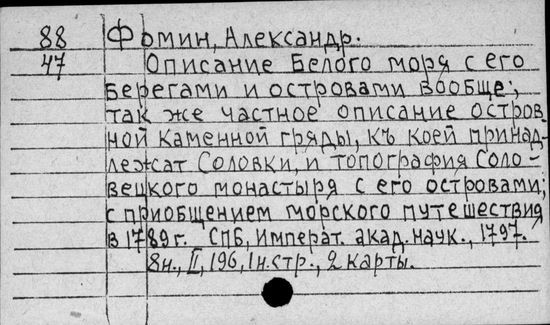 88 Фомин, Александр.
47 Описание Белого моря с его
берегами и островами вообще;
так же частное описание остров
ной каменной гряды, къ коей принад-
лежат Соловки, и топография Соло-
вецкого монастыря с его островами;
с приобщением морского путешествия
в 1789 г. СПБ, Императ. акад. наук., 1797.
8н., II, 196, 1н.стр., 2 карты.